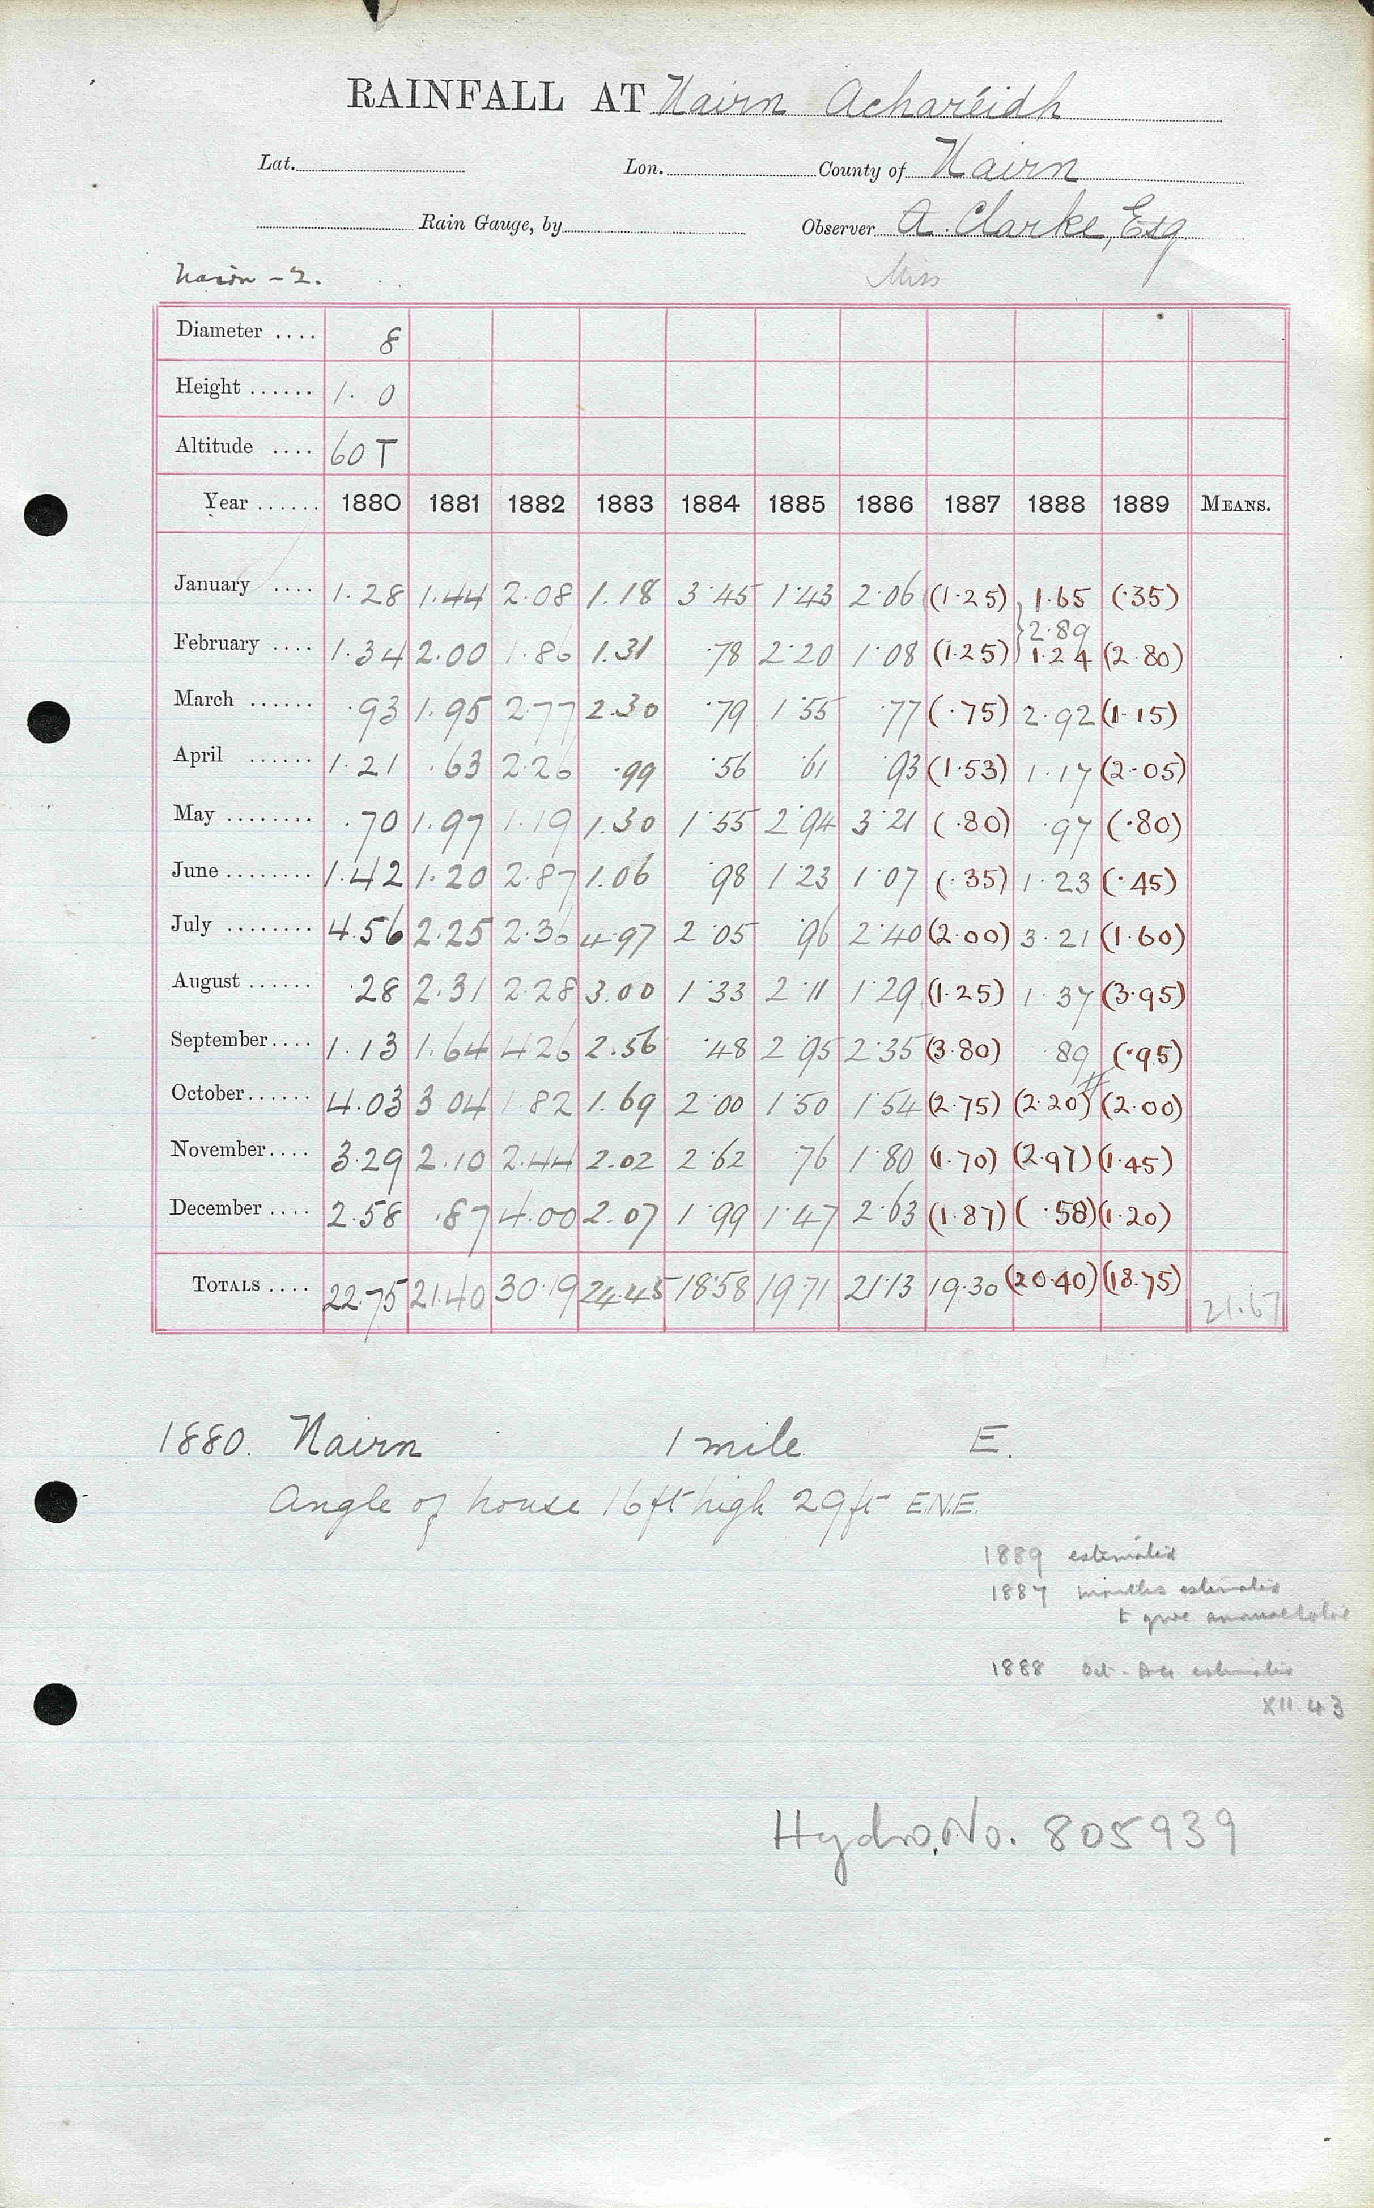 RAINFALL AT Nairn Achareidh
Lat. Lon. County of Nairn
Rain Gauge, by Observer A. Clarke, Esq
Nairn - 2. Miss
Diameter .... 8
Height ...... 1. 0
Altitude .... 60 T
Year ...... 1880 1881 1882 1883 1884 1885 1886 1887 1888 1889 MEANS.
January .... 1.28 1.44 2.08 1.18 3.45 1.43 2.06 (1.25) 1.65 (.35)
2.89
February .... 1.34 2.00 1.86 1.31 .78 2.20 1.08 (1.25) 1.24 (2.80)
March ...... .93 1.95 2.77 2.30 .79 1.55 .77 (.75) 2.92 (1.15)
April ...... 1.21 .63 2.26 .99 .56 .61 .93 (1.53) 1.17 (2.05)
May ........ .70 1.97 1.19 1.30 1.55 2.94 3.21 (.80) .97 (.80)
June ........ 1.42 1.20 2.87 1.06 .98 1.23 1.07 (.35) 1.23 (.45)
July ........ 4.56 2.25 2.36 4.97 2.05 .96 2.40 (2.00) 3.21 (1.60)
August ...... .28 2.31 2.28 3.00 1.33 2.11 1.29 (1.25) 1.37 (3.95)
September.... 1.13 1.64 4.26 2.56 .48 2.95 2.35 (3.80) .89 (.95)
October...... 4.03 3.04 1.82 1.69 2.00 1.50 1.54 (2.75) (2.20) (2.00)
November.... 3.29 2.10 2.44 2.02 2.62 .76 1.80 (1.70) (2.97) (1.45)
December .... 2.58 .87 4.00 2.07 1.99 1.47 2.63 (1.87) (.58) (1.20)
TOTALS .... 22.75 21.40 30.19 24.45 18.58 19.71 21.13 19.30 (20.40) (18.75) 21.67
1880. Nairn 1 mile E.
Angle of house 16 ft high 29 ft E.N.E.
1889 estimated
1887 months estimated
to give annual total
1888 Oct - Dec estimated
XII.43
Hydro. No. 805939